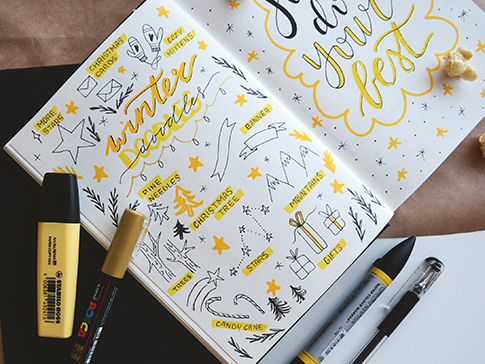 CHRISTMAS
CARDS
COZY
MITTENS
MORE
STARS
winter
DOODLES
doodles
BANNER
PINE
NEEDLES
CHRISTMAS
TREE
MOUNTAINS
STARS
GIFTS
TREES
CANDY CANE
do
your
best
STABILO BOSS
POSCA